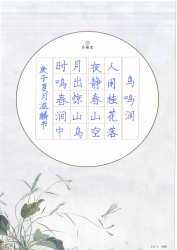 鸟鸣涧
人闲桂花落
夜静春山空
月出惊山鸟
时鸣春涧中
庚子夏月
书